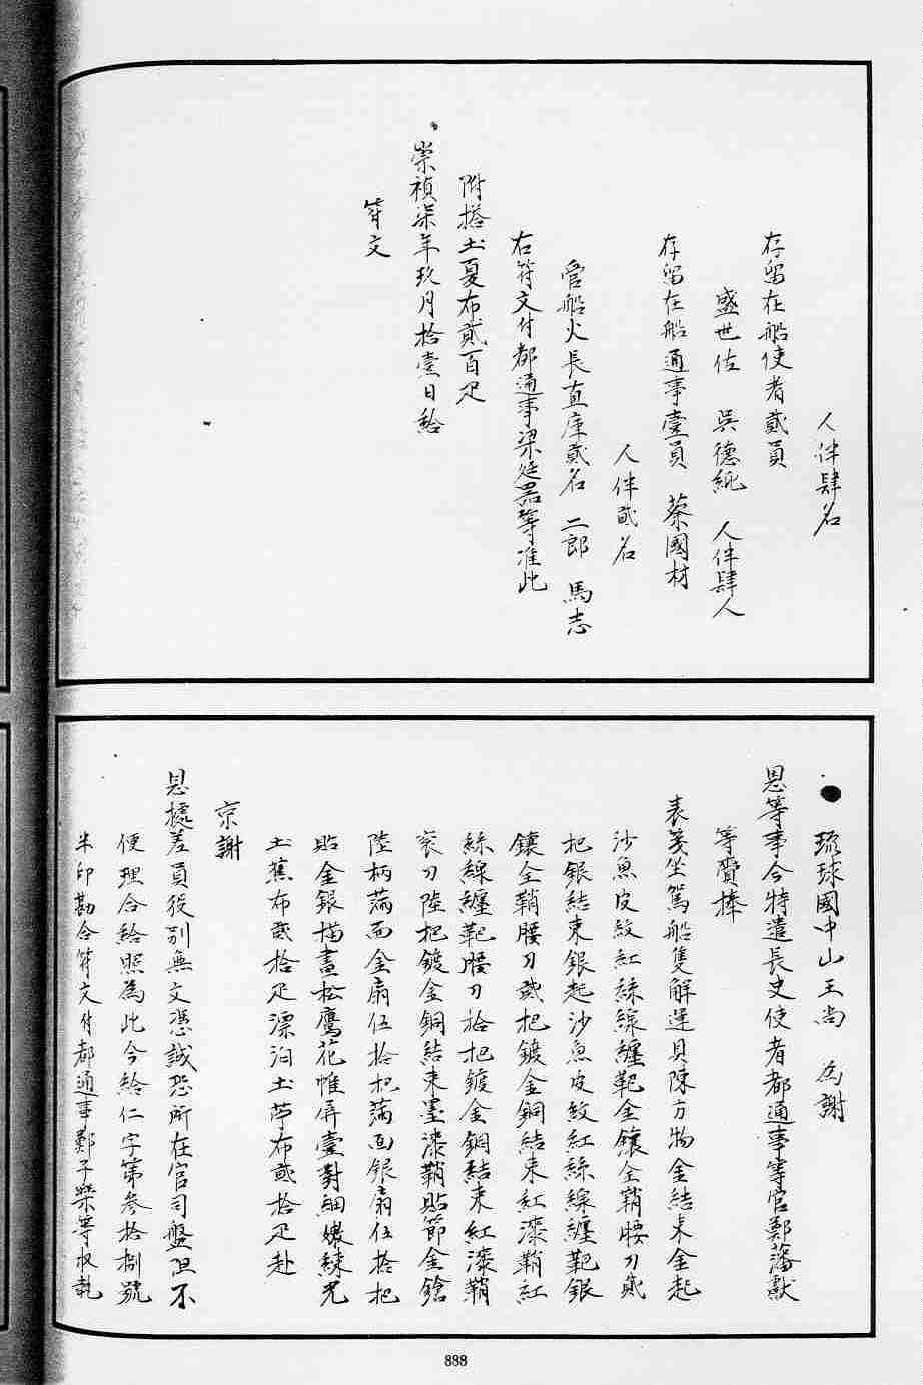 人伴肆名
存留在船使者貳員
盛世佐 吳德純 人伴肆人
存留在船通事壹員 蔡國材
人伴貳名
管船火長直庫貳名 二郎 馬志
右符文付都通事梁廷器等准此
附搭土夏布貳百疋
崇禎柒年玖月拾壹日給
符文
琉球國中山王尚 為謝
恩等事今特遣長史使者都通事等官鄭藩獻
等賫捧
表箋坐駕船隻解運貝陳方物金結束金起
沙魚皮紋紅絲線纏靶金鑲全鞘腰刀貳
把銀結束銀起沙魚皮紋紅絲線纏靶銀
鑲全鞘腰刀貳把鍍金銅結束紅漆鞘紅
絲線纏靶腰刀拾把鍍金銅結束紅漆鞘
袞刀陸把鍍金銅結束墨漆鞘貼節金鎗
陸柄滿面金扇伍拾把滿面銀扇伍拾把
貼金銀描畫松鷹花帷屏壹對細嫩練光
土蕉布貳拾疋漂泊土苧布貳拾疋赴
京謝
恩據差員役別無文憑誠恐所在官司盤阻不
便理合給照為此今給仁字第叁拾捌號
半印勘合符文付都通事鄭子樂等收執
888